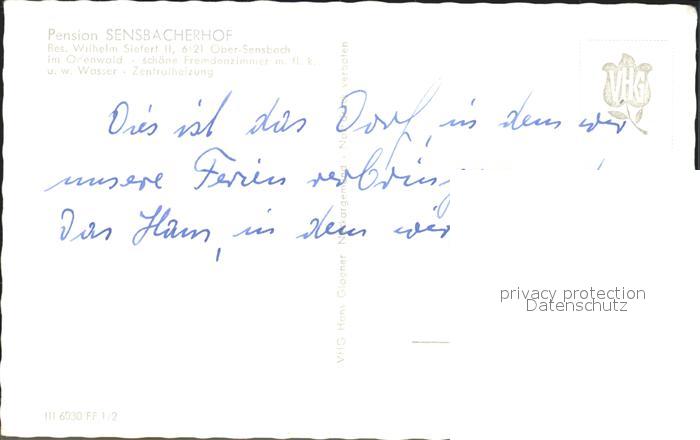 Pension SENSBACHERHOF
Bes. Wilhelm Siefert II, 6121 Ober-Sensbach
im Odenwald - schöne Fremdenzimmer m. fl. k.
u. w. Wasser - Zentralheizung
VHG
Dies ist das Dorf, in dem wir
unsere Ferien verbring
Das Haus, in dem wir
VHG Hans Neckargemünd verboten
privacy protection
Datenschutz
III 6030 FF 1/2